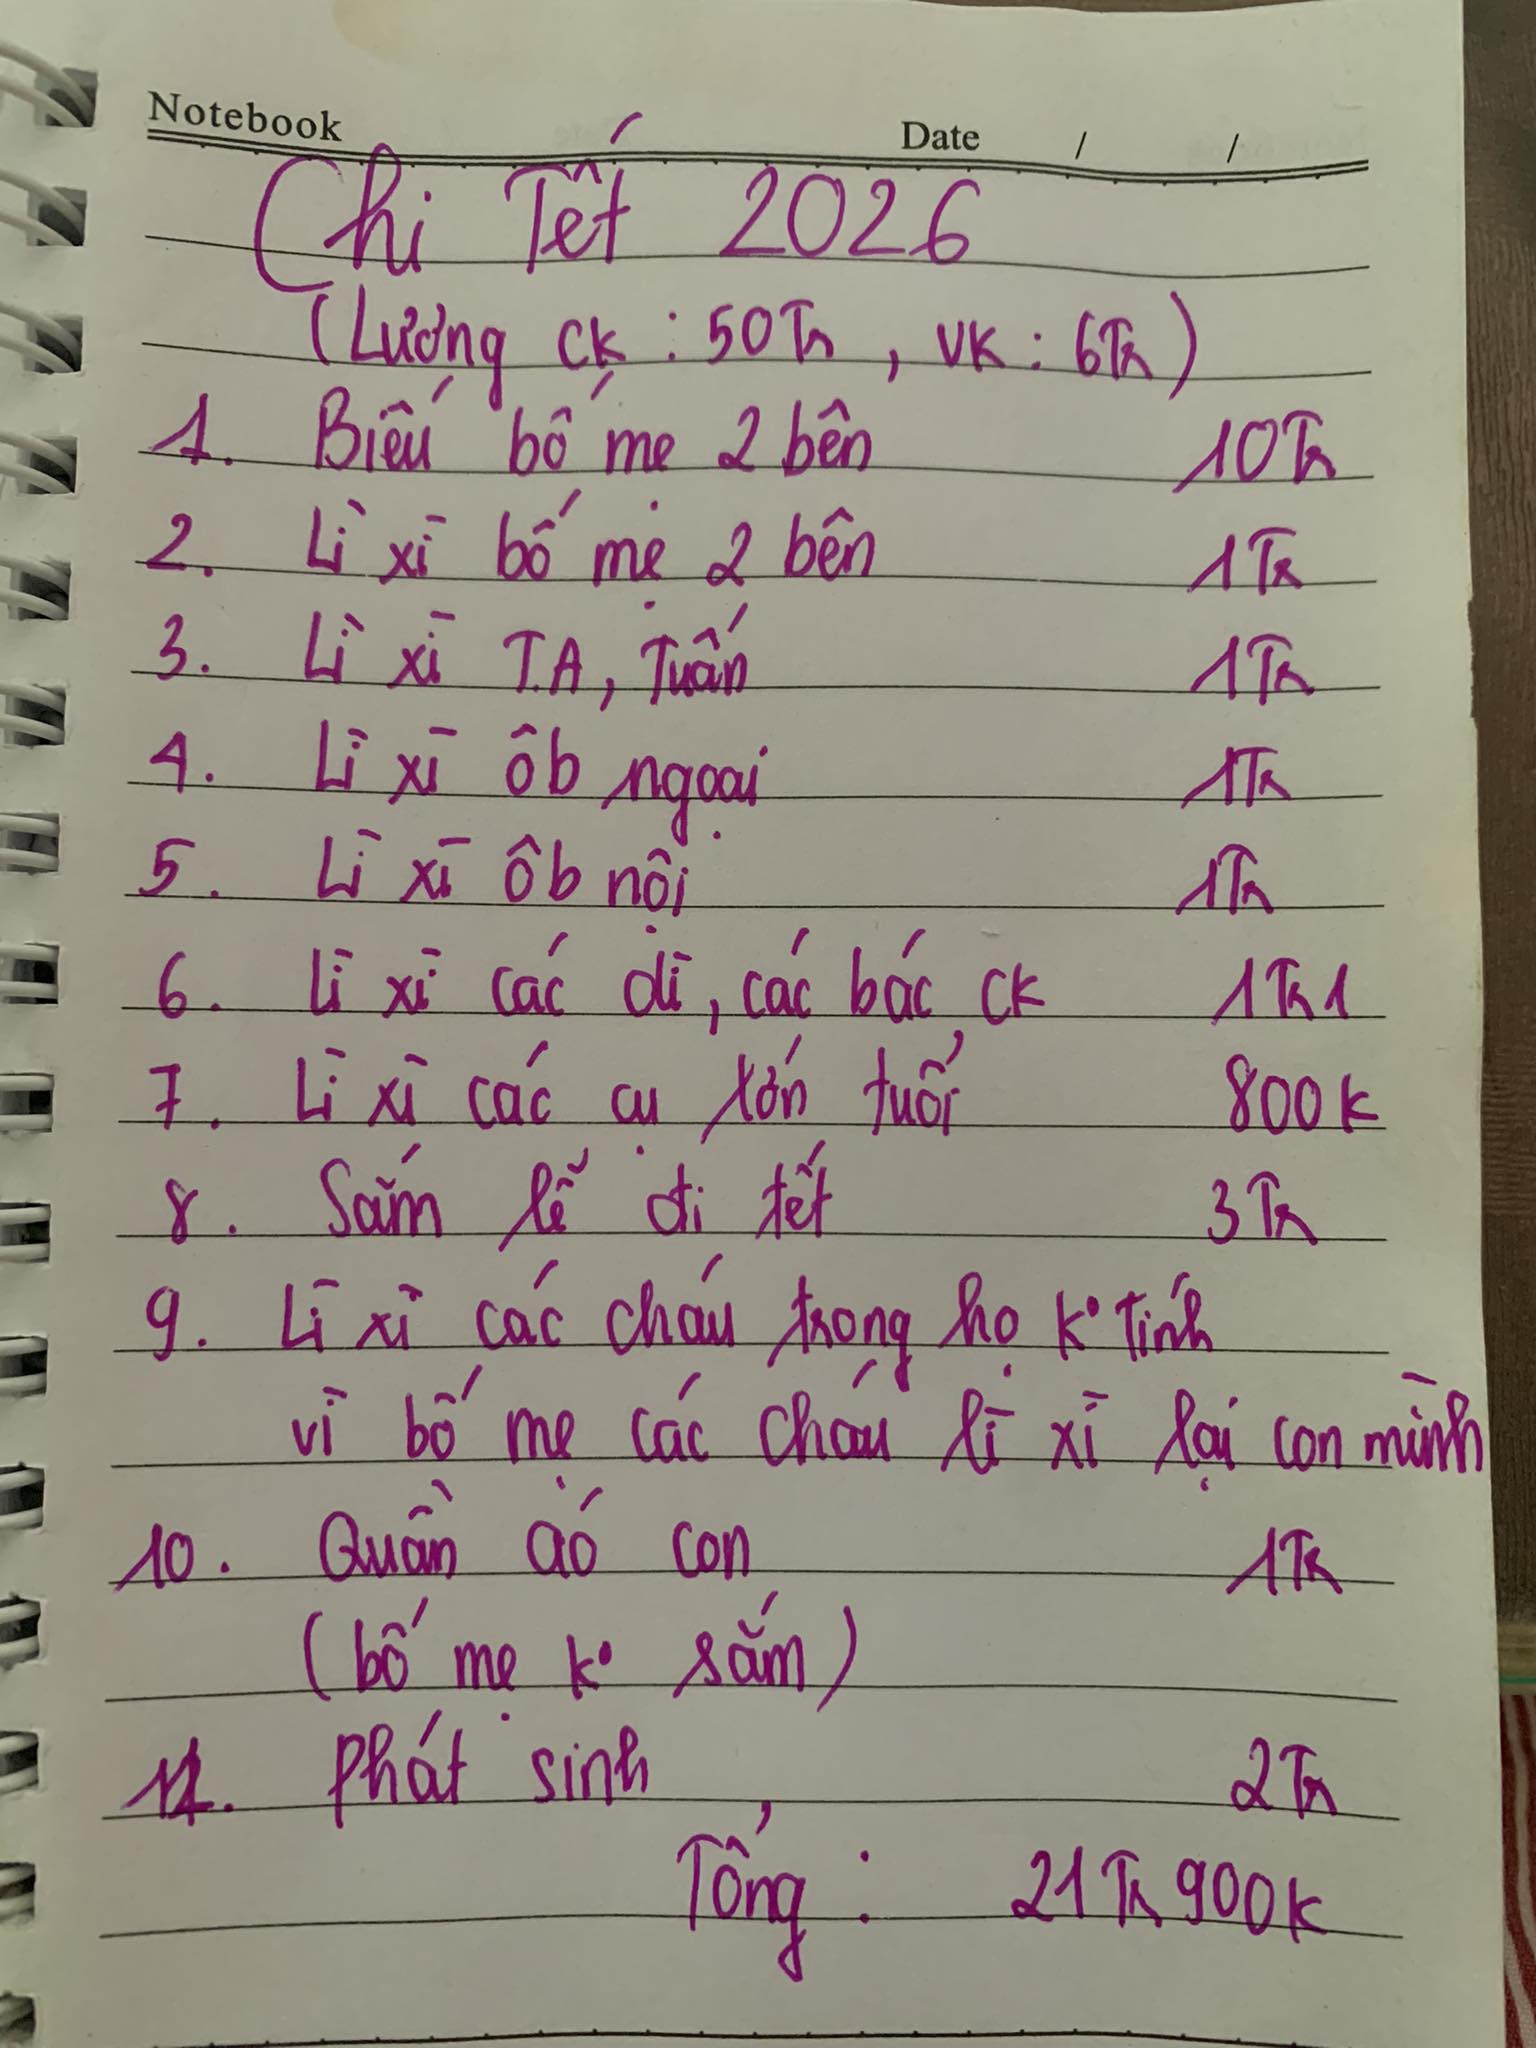 Notebook Date / /
Chi Tết 2026
(Lương ck : 50Tr , vk : 6Tr)
1. Biếu bố mẹ 2 bên 10Tr
2. Lì xì bố mẹ 2 bên 1Tr
3. Lì xì T.A, Tuấn 1Tr
4. Lì xì ôb ngoại 1Tr
5. Lì xì ôb nội 1Tr
6. Lì xì các dì, các bác ck 1Tr1
7. Lì xì các cụ lớn tuổi 800k
8. Sắm lễ đi tết 3Tr
9. Lì xì các cháu trong họ ko tính
vì bố mẹ các cháu lì xì lại con mình
10. Quần áo con 1Tr
(bố mẹ ko sắm)
11. Phát sinh 2Tr
Tổng : 21Tr900k